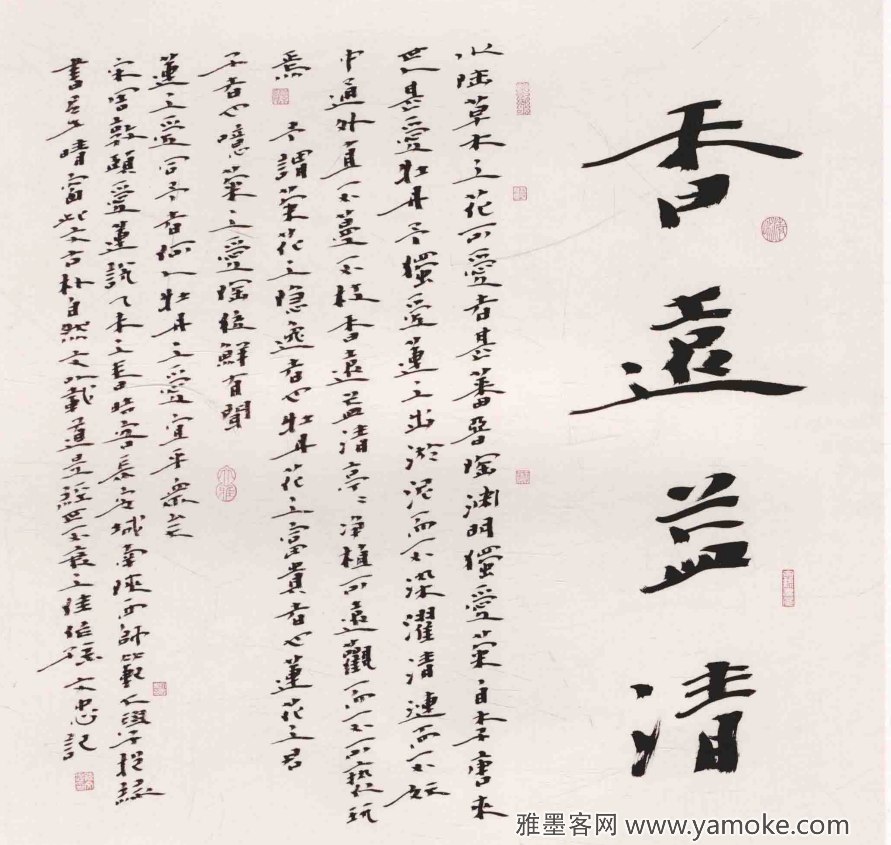 香遠益清
水陸草木之花可愛者甚蕃晉陶淵明獨愛菊自李唐來
世人甚愛牡丹予獨愛蓮之出淤泥而不染濯清漣而不妖
中通外直不蔓不枝香遠益清亭亭淨植可遠觀而不可褻玩
焉 予謂菊花之隱逸者也牡丹花之富貴者也蓮花之君
子者也噫菊之愛陶後鮮有聞
蓮之愛同予者何人牡丹之愛宜乎衆矣
宋周敦頤愛蓮說乙未之春時客長安城南陝西師範大學
書晴窗此文古朴自然文以載道是經世不衰之佳作孫文忠記
雅墨客网 www.yamoke.com